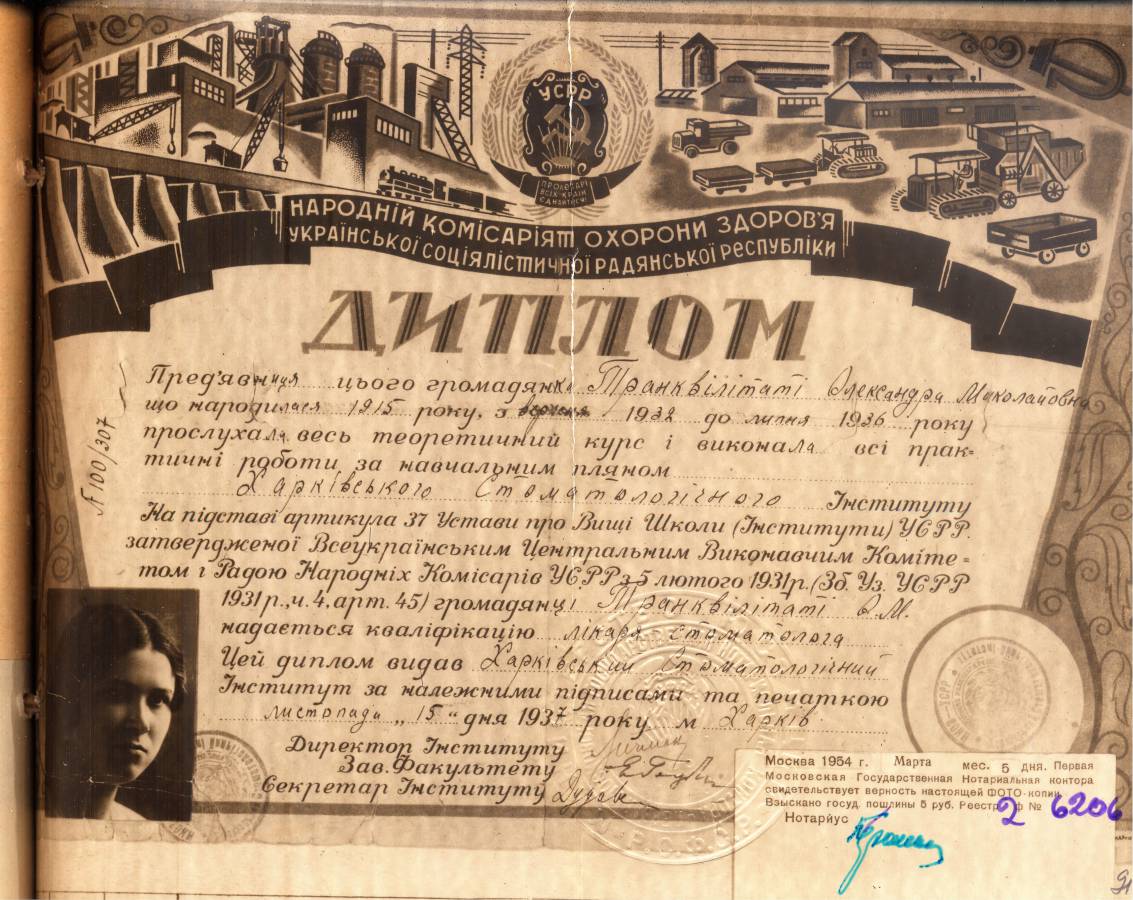 УСРР
ПРОЛЕТАРІ
ВСІХ КРАЇН
ЄДНАЙТЕСЯ
НАРОДНІЙ КОМІСАРІЯТ ОХОРОНИ ЗДОРОВ'Я
УКРАЇНСЬКОЇ СОЦІЯЛІСТИЧНОЇ РАДЯНСЬКОЇ РЕСПУБЛІКИ
ДИПЛОМ
Пред'явниця цього громадянка Транквілітаті Олександра Миколайовна
що народилася 1915 року, з вересня 1932 до липня 1936 року
прослухала весь теоретичний курс і виконала всі прак-
тичні роботи за навчальним пляном
Харківського Стоматологічного Інституту
На підставі артикула 37 Устави про Вищі Школи (Інститути) УСРР.
затвердженої Всеукраїнським Центральним Виконавчим Коміте-
том і Радою Народніх Комісарів УСРР з 5 лютого 1931 р. (Зб. Уз. УСРР
1931 р., ч. 4, арт. 45) громадянці Транквілітаті О.М.
надається кваліфікацію лікаря стоматолога
Цей диплом видав Харківський Стоматологічний
Інститут за належними підписами та печаткою
листопада „15" дня 1937 року м Харків
Директор Інституту
Зав. Факультету
Секретар Інституту
№100/307
Москва 1954 г. Марта мес. 5 дня. Первая
Московская Государственная Нотариальная контора
свидетельствует верность настоящей ФОТО-копии
Взыскано госуд. пошлины 5 руб. Реестр ф № 2 6206
Нотариус
Р.С.Ф.С.Р.